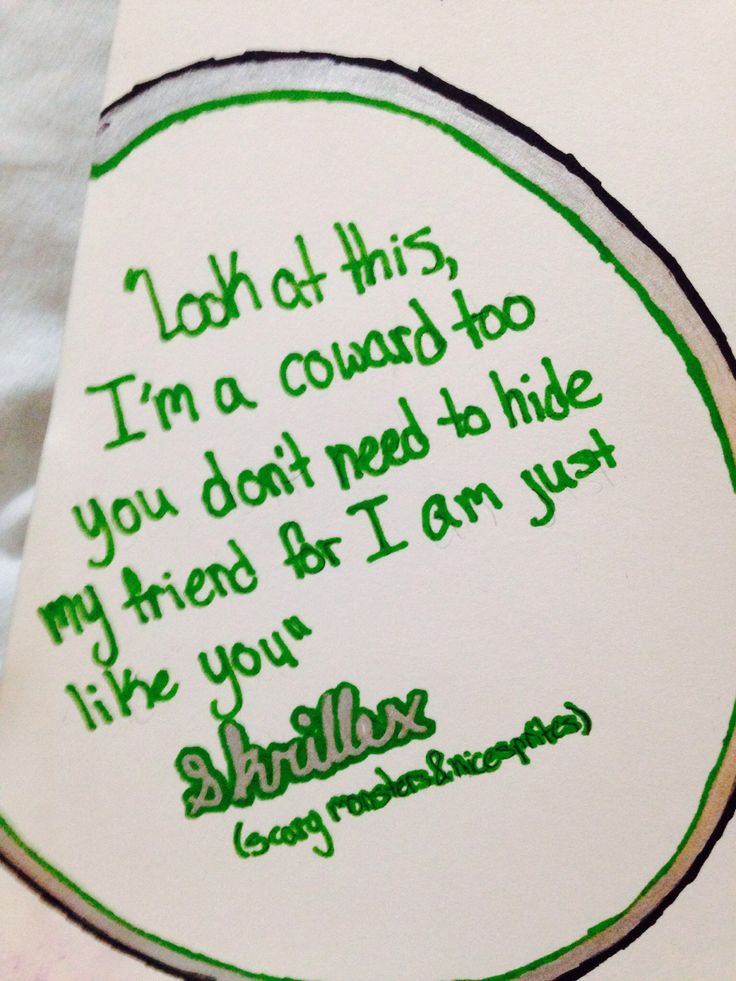 "Look at this,
I'm a coward too
you don't need to hide
my friend for I am just
like you"
Skrillex
(scary monsters&nicesprites)